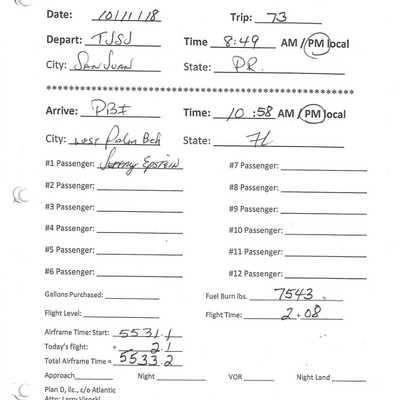 Date: 10/11/18 Trip: 73
Depart: TJSJ Time 8:49 AM / PM local
City: San Juan State: PR.
************************************************
Arrive: PBI Time: 10 :58 AM / PM local
City: West Palm Bch State: FL
#1 Passenger: Jeffrey Epstein #7 Passenger:
#2 Passenger: #8 Passenger:
#3 Passenger: #9 Passenger:
#4 Passenger: #10 Passenger:
#5 Passenger: #11 Passenger:
#6 Passenger: #12 Passenger:
Gallons Purchased: Fuel Burn lbs. 7543.
Flight Level: Flight Time: 2+08
Airframe Time: Start: 5531.1
Today's flight: + 2.1
Total Airframe Time = 5533.2
Approach Night VOR Night Land
Plan D, llc., c/o Atlantic
Attn: Larry Visoski